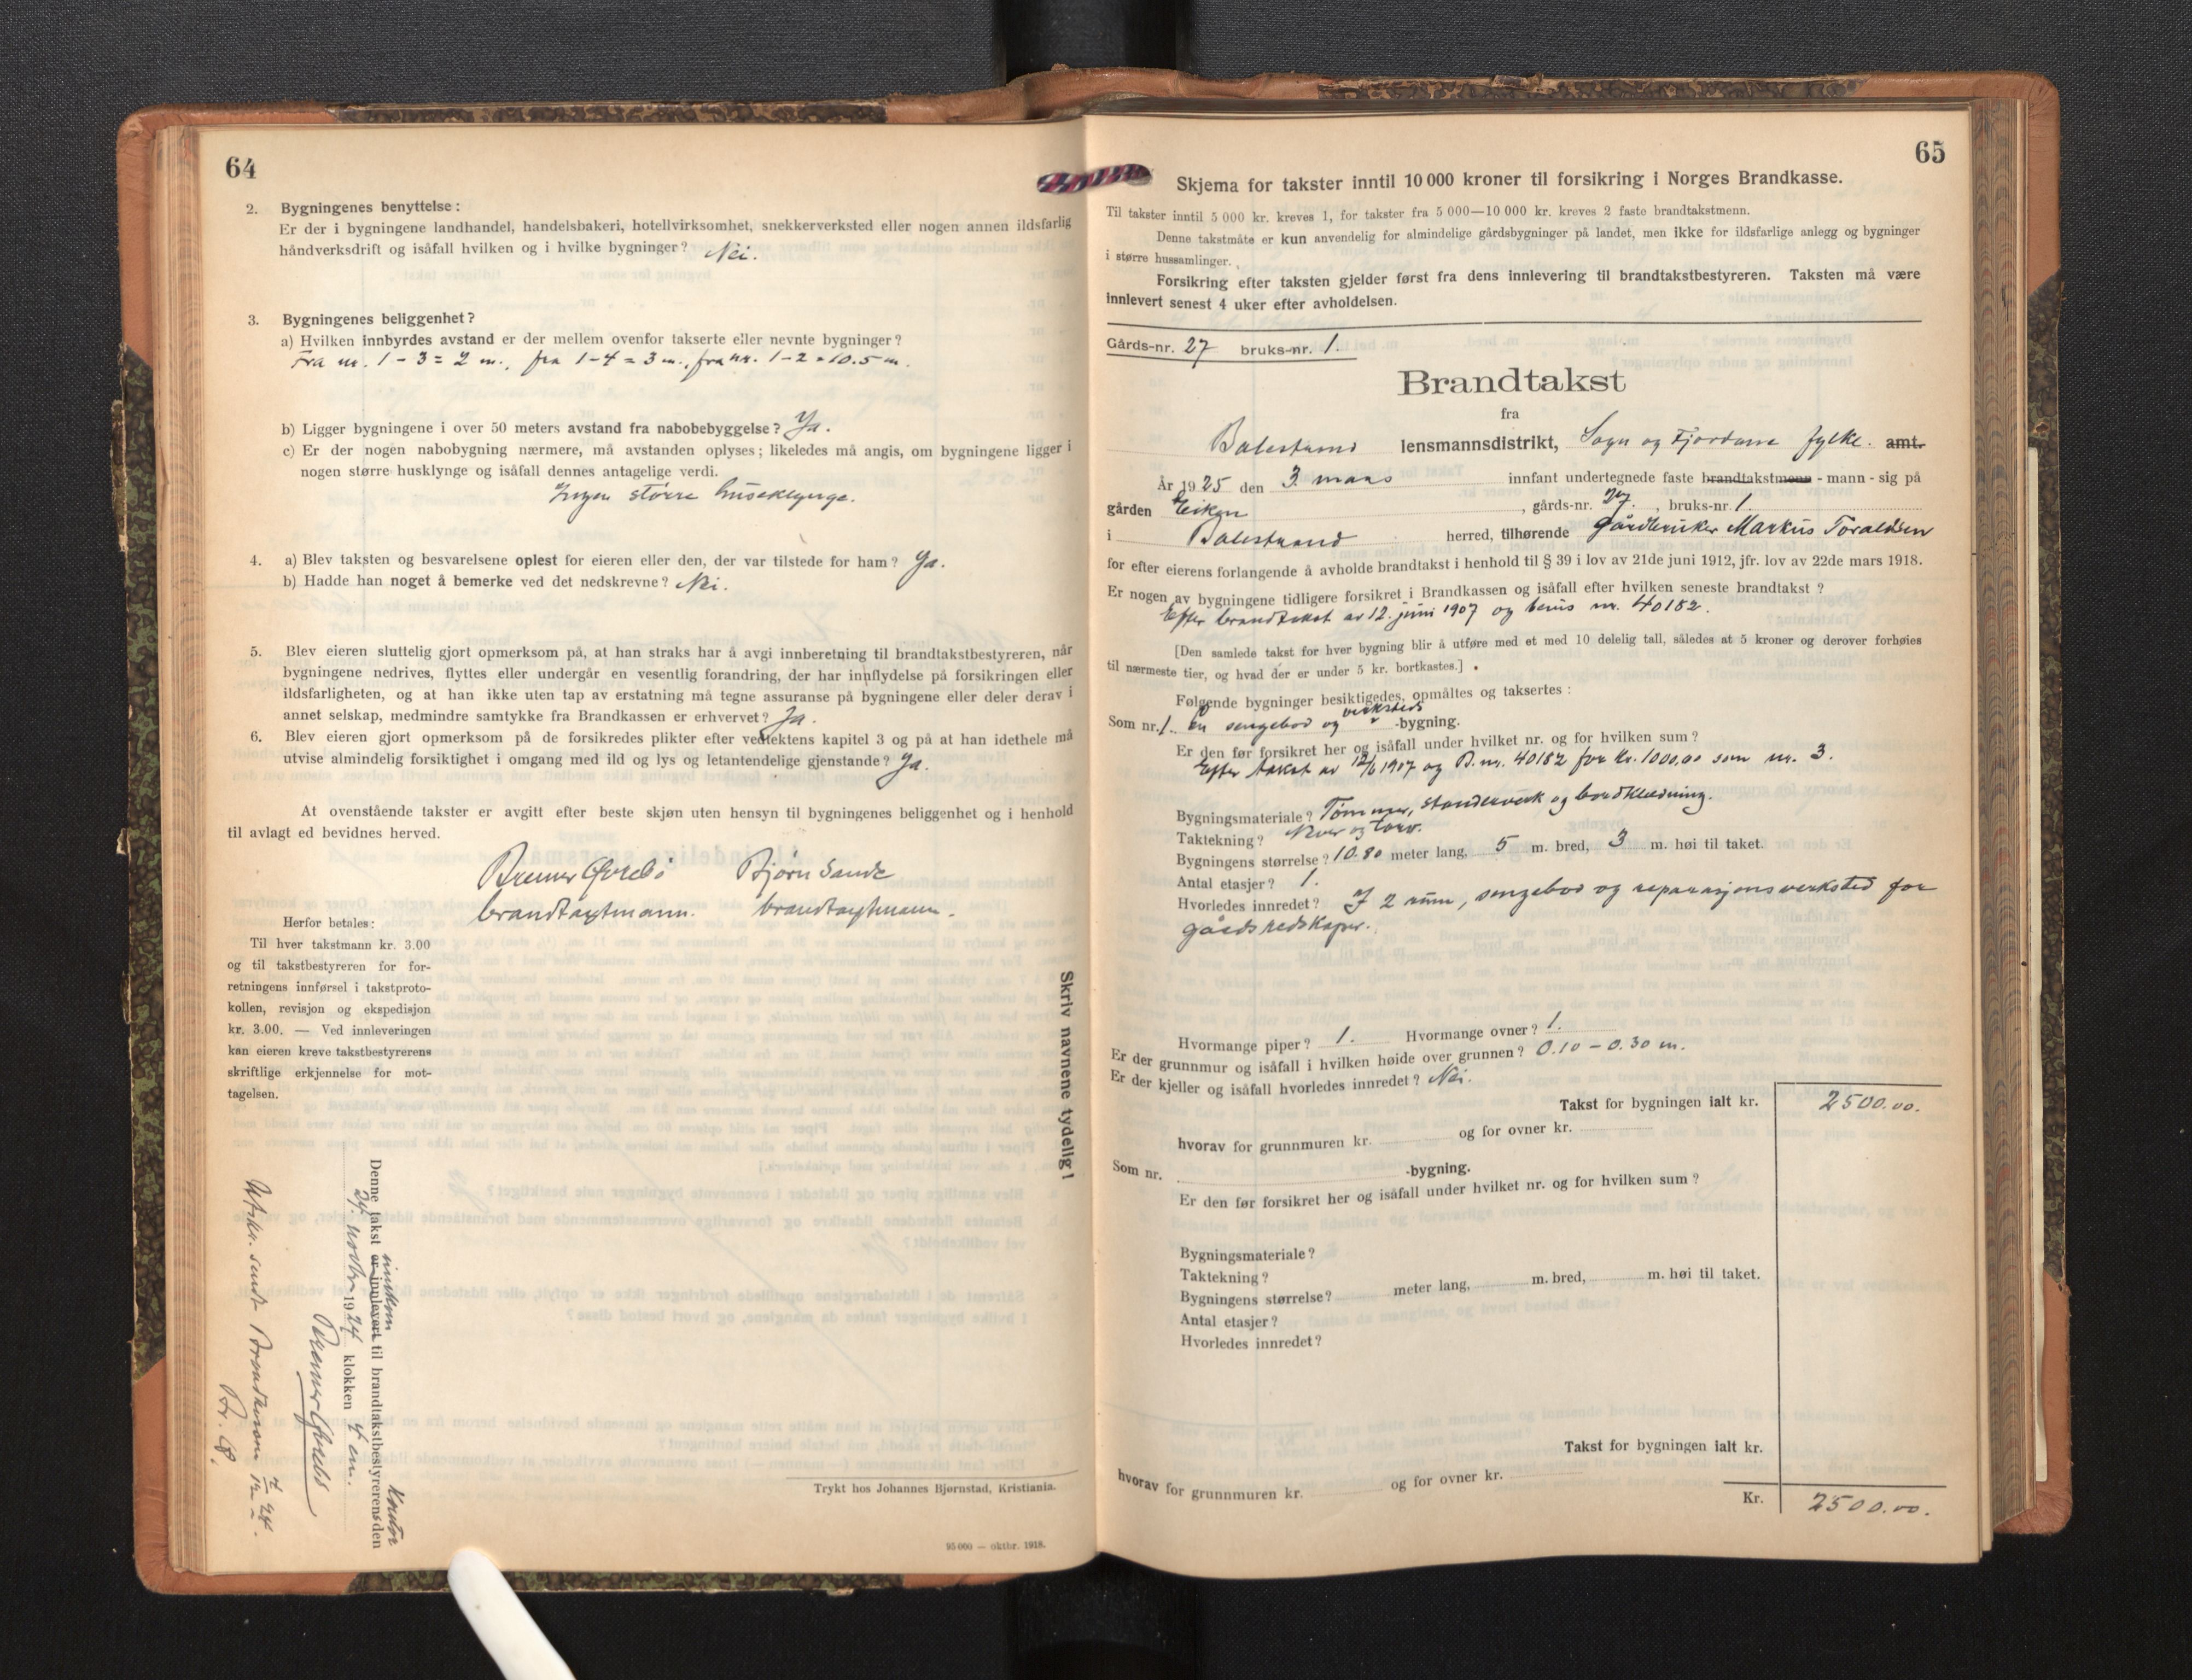 64
2. Bygningenes benyttelse:
Er der i bygningene landhandel, handelsbakeri, hotellvirksomhet, snekkerverksted eller nogen annen ildsfarlig
håndverksdrift og isåfall hvilken og i hvilke bygninger? Nei.
3. Bygningenes beliggenhet?
a) Hvilken innbyrdes avstand er der mellem ovenfor takserte eller nevnte bygninger?
Fra nr. 1 - 3 = 2 m., fra 1 - 4 = 3 m., fra nr. 1 - 2 = 10.5 m.
b) Ligger bygningene i over 50 meters avstand fra nabobebyggelse? Ja.
c) Er der nogen nabobygning nærmere, må avstanden oplyses; likeledes må angis, om bygningene ligger i
nogen større husklynge og isåfall dennes antagelige verdi.
Ingen større huseklynge.
4. a) Blev taksten og besvarelsene oplest for eieren eller den, der var tilstede for ham? Ja.
b) Hadde han noget å bemerke ved det nedskrevne? Nei.
5. Blev eieren sluttelig gjort opmerksom på, at han straks har å avgi innberetning til brandtakstbestyreren, når
bygningene nedrives, flyttes eller undergår en vesentlig forandring, der har innflydelse på forsikringen eller
ildsfarligheten, og at han ikke uten tap av erstatning må tegne assuranse på bygningene eller deler derav i
annet selskap, medmindre samtykke fra Brandkassen er erhvervet? Ja.
6. Blev eieren gjort opmerksom på de forsikredes plikter efter vedtektens kapitel 3 og på at han idethele må
utvise almindelig forsiktighet i omgang med ild og lys og letantendelige gjenstande? Ja.
At ovenstående takster er avgitt efter beste skjøn uten hensyn til bygningenes beliggenhet og i henhold
til avlagt ed bevidnes herved.
Bremer Øvrebø Bjørn Sande
brandtaxtmann. brandtaxtmann.
Herfor betales:
Til hver takstmann kr. 3.00
og til takstbestyreren for for-
retningens innførsel i takstproto-
kollen, revisjon og ekspedisjon
kr. 3.00. — Ved innleveringen
kan eieren kreve takstbestyrerens
skriftlige erkjennelse for mot-
tagelsen.
Skriv navnene tydelig!
innkom kontor
Denne takst er innlevert til brandtakstbestyrerens den
24. novbr. 1924 klokken 4 em.
Bremer Øvrebø
Utskr. sendt Brandkassen 7/12 24.
Br. Ø.
Trykt hos Johannes Bjørnstad, Kristiania.
95 000 — oktbr. 1918.
65
Skjema for takster inntil 10 000 kroner til forsikring i Norges Brandkasse.
Til takster inntil 5 000 kr. kreves 1, for takster fra 5 000—10 000 kr. kreves 2 faste brandtakstmenn.
Denne takstmåte er kun anvendelig for almindelige gårdsbygninger på landet, men ikke for ildsfarlige anlegg og bygninger
i større hussamlinger.
Forsikring efter taksten gjelder først fra dens innlevering til brandtakstbestyreren. Taksten må være
innlevert senest 4 uker efter avholdelsen.
Gårds-nr. 27 bruks-nr. 1.
Brandtakst
fra
Balestrand lensmannsdistrikt, Sogn og Fjordane fylke. amt.
År 1925 den 3. mars innfant undertegnede faste brandtakstmenn - mann - sig på
gården Eiken, gårds-nr. 27., bruks-nr. 1.
i Balestrand herred, tilhørende gårdbruker Markus Toraldsen
for efter eierens forlangende å avholde brandtakst i henhold til § 39 i lov av 21de juni 1912, jfr. lov av 22de mars 1918.
Er nogen av bygningene tidligere forsikret i Brandkassen og isåfall efter hvilken seneste brandtakst?
Efter brandtakst av 12. juni 1907 og bevis nr. 40182.
[Den samlede takst for hver bygning blir å utføre med et med 10 delelig tall, således at 5 kroner og derover forhøies
til nærmeste tier, og hvad der er under 5 kr. bortkastes.]
Følgende bygninger besiktigedes, opmåltes og taksertes:
Som nr. 1. en sengebod og verksteds -bygning.
Er den før forsikret her og isåfall under hvilket nr. og for hvilken sum?
Efter takst av 12/6 1907 og B.nr. 40182 for kr. 1000.00 som nr. 3.
Bygningsmateriale? Tømmer, standerverk og bordklædning.
Taktekning? Never og torv.
Bygningens størrelse? 10.80 meter lang, 5 m. bred, 3 m. høi til taket.
Antal etasjer? 1.
Hvorledes innredet? I 2 rum, sengebod og reparasjonsverksted for
gårdsredskaper.
Hvormange piper? 1. Hvormange ovner? 1.
Er der grunnmur og isåfall i hvilken høide over grunnen? 0.10 - 0.30 m.
Er der kjeller og isåfall hvorledes innredet? Nei.
Takst for bygningen ialt kr. 2500.00.
hvorav for grunnmuren kr. og for ovner kr.
Som nr. -bygning.
Er den før forsikret her og isåfall under hvilket nr. og for hvilken sum?
Bygningsmateriale?
Taktekning?
Bygningens størrelse? meter lang, m. bred, m. høi til taket.
Antal etasjer?
Hvorledes innredet?
Takst for bygningen ialt kr.
hvorav for grunnmuren kr. og for ovner kr.
Kr. 2500.00.